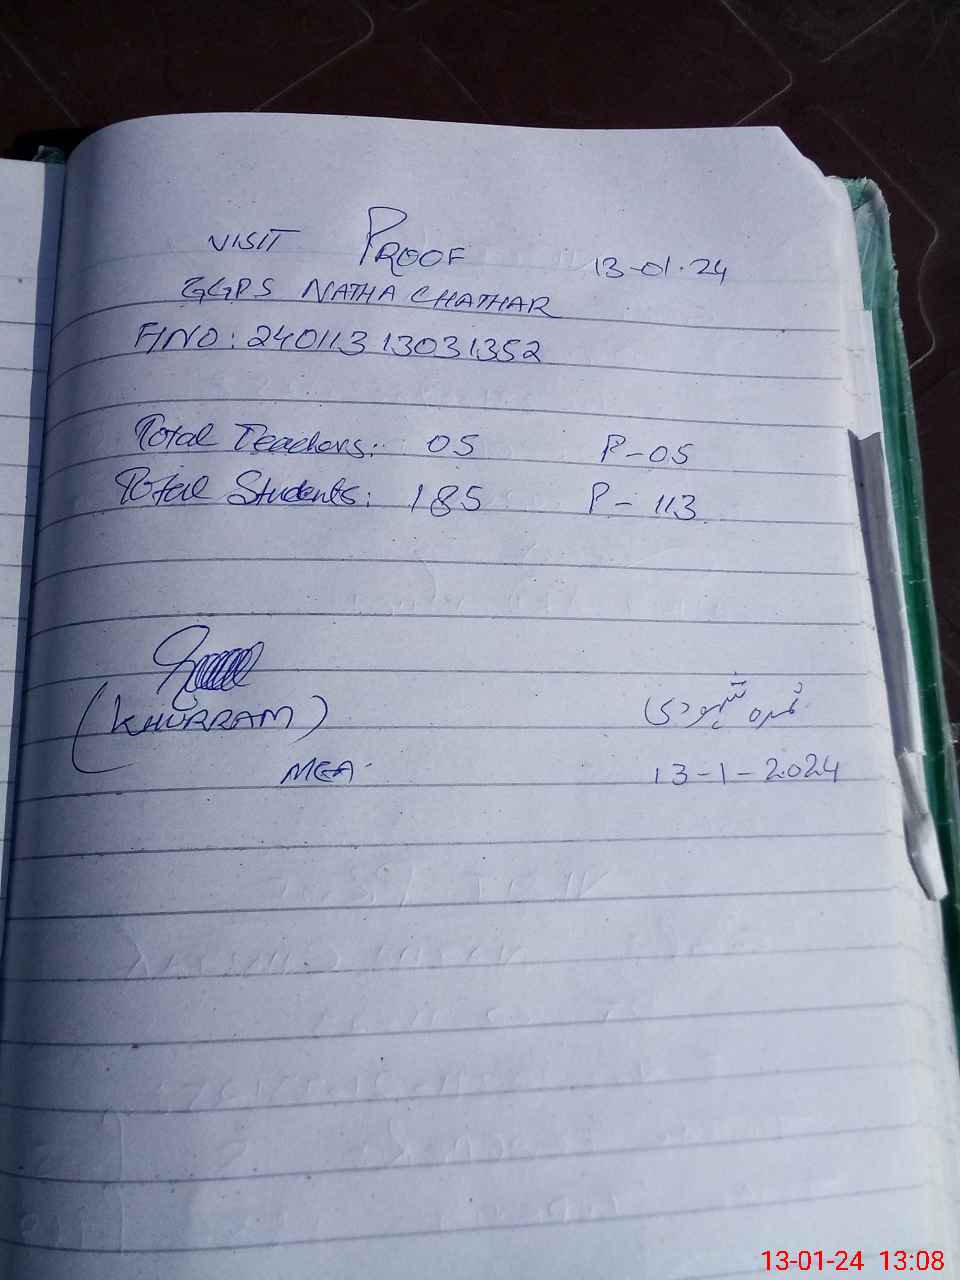 VISIT PROOF 13-01-24
GGPS NATHA CHATHAR
F/NO: 24011313031352
Total Teachers: 05 P-05
Total Students: 185 P-113
(KHURRAM)
MEA
13-1-2024
13-01-24 13:08